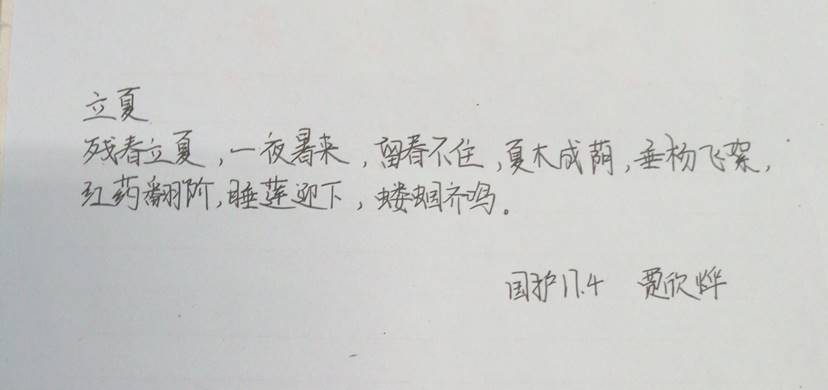 立夏
残春立夏，一夜暑来，留春不住，夏木成荫，垂杨飞絮，
红药翻阶，睡莲迎下，蝼蝈齐鸣。
国护17.4 贾欣烨